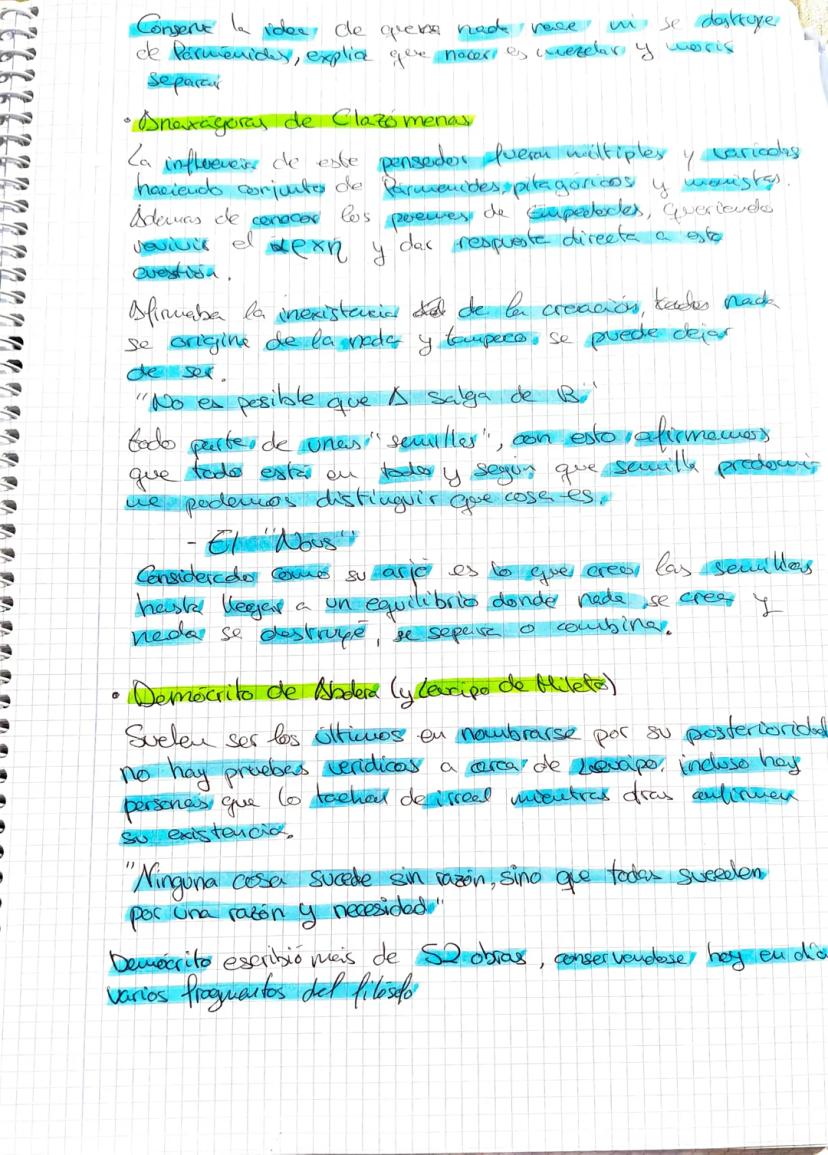 Conserva la idea de que nada nace ni se destruye
de Parmenides, explica que nacer es mezclar y morir
separar
• Anaxágoras de Clazómenas
La influencia de este pensador fueron múltiples y variadas
haciendo conjunto de Parmenides, pitagóricos y monistas.
Ademas de conocer los poemas de Empedocles, queriendo
revivir el αρχη y dar respuesta directa a esta
cuestión.
Afirmaba la inexistencia de la creación, nada
se origina de la nada y tampoco se puede dejar
de ser.
"No es posible que A salga de B."
todo parte de unas "semillas", con esto afirmamos
que todo está en todo y según que semilla predomi-
ne podemos distinguir que cosa es.
- El "Nous"
Considerado como su arjé es lo que creo las semillas
hasta llegar a un equilibrio donde nada se crea y
nada se destruye, se separa o combina.
• Demócrito de Abdera (y Leucipo de Mileto)
Suelen ser los últimos en nombrarse por su posterioridad
no hay pruebas verídicas a cerca de Leucipo, incluso hay
personas que lo tachan de irreal mientras otras confirman
su existencia.
"Ninguna cosa sucede sin razón, sino que todas suceden
por una razón y necesidad"
Demócrito escribió más de 52 obras, conservandose hoy en día
varios fragmentos del filósofo